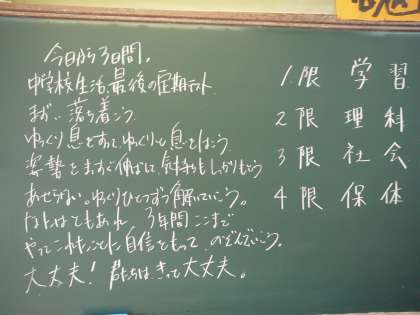 今日から3日間、
中学校生活、最後の定期テスト
まず、落ち着こう
ゆっくり息をすって、ゆっくりと息をはこう
姿勢をまっすぐ伸ばして、気持ちもしっかりもとう
あせらない。ゆっくりひとつずつ解いていこう。
なにはともあれ、3年間ここまで
やってこれたことに自信をもって、のぞんでいこう。
大丈夫！君たちは、きっと大丈夫。
1限 学習
2限 理科
3限 社会
4限 保体